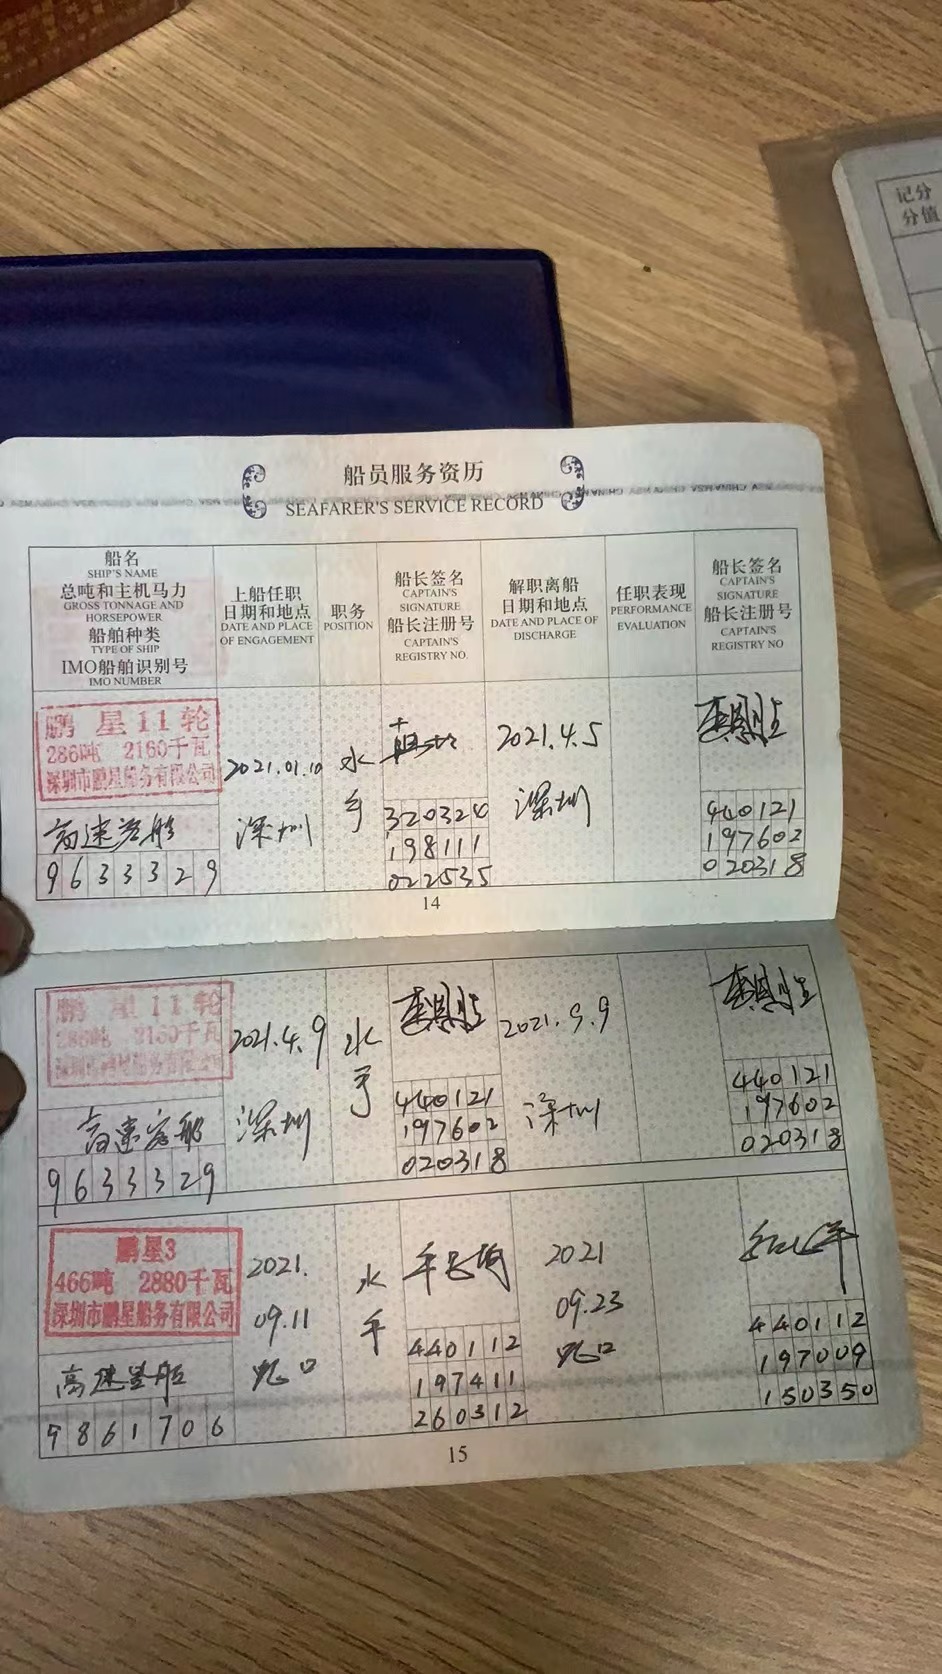 记分
分值
船员服务资历
CHINA MSA CHINA MSA CHINA MSA
SEAFARER'S SERVICE RECORD
船名
SHIP'S NAME
总吨和主机马力
GROSS TONNAGE AND
HORSEPOWER
船舶种类
TYPE OF SHIP
IMO船舶识别号
IMO NUMBER
上船任职
日期和地点
DATE AND PLACE
OF ENGAGEMENT
职务
POSITION
船长签名
CAPTAIN'S
SIGNATURE
船长注册号
CAPTAIN'S
REGISTRY NO.
解职离船
日期和地点
DATE AND PLACE OF
DISCHARGE
任职表现
PERFORMANCE
EVALUATION
船长签名
CAPTAIN'S
SIGNATURE
船长注册号
CAPTAIN'S
REGISTRY NO
鹏星11轮
286吨 2160千瓦
深圳市鹏星船务有限公司
高速客船
9633329
2021.01.10
深圳
水
手
320324
198111
022535
2021.4.5
深圳
440121
197602
020318
14
鹏星11轮
286吨 2160千瓦
深圳市鹏星船务有限公司
高速客船
9633329
2021.4.9
深圳
水
手
440121
197602
020318
2021.9.9
深圳
440121
197602
020318
鹏星3
466吨 2880千瓦
深圳市鹏星船务有限公司
高速客船
9861706
2021.
09.11
蛇口
水
手
440112
197411
260312
2021
09.23
蛇口
440112
197009
150350
15